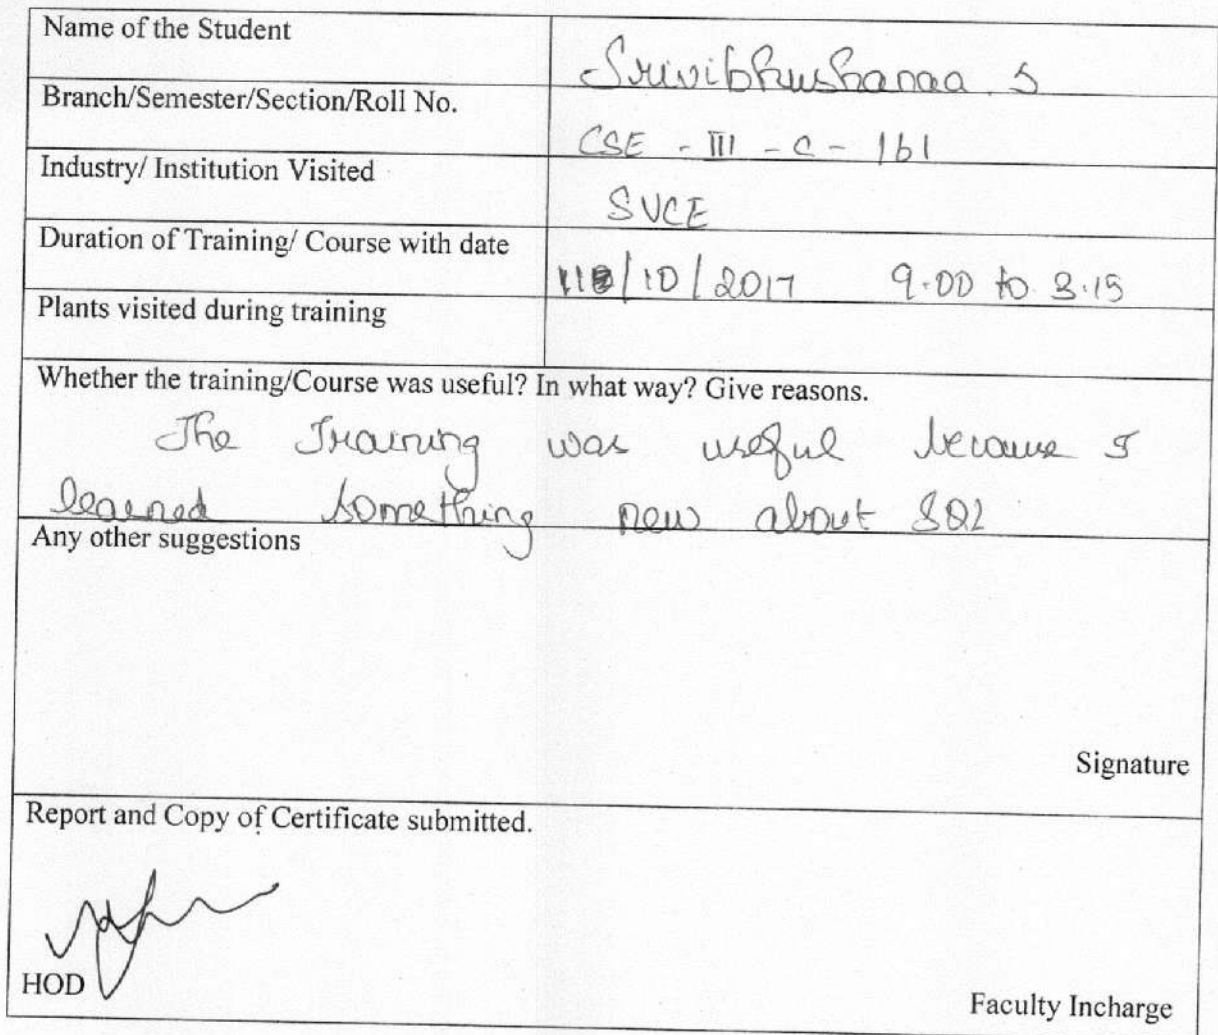 Name of the Student
Srivibhushanaa. S
Branch/Semester/Section/Roll No.
CSE - III - C - 161
Industry/ Institution Visited
SVCE
Duration of Training/ Course with date
/10/2017 9.00 to 3.15
Plants visited during training
Whether the training/Course was useful? In what way? Give reasons.
The Training was useful because I
learned something new about SQL
Any other suggestions
Signature
Report and Copy of Certificate submitted.
HOD
Faculty Incharge